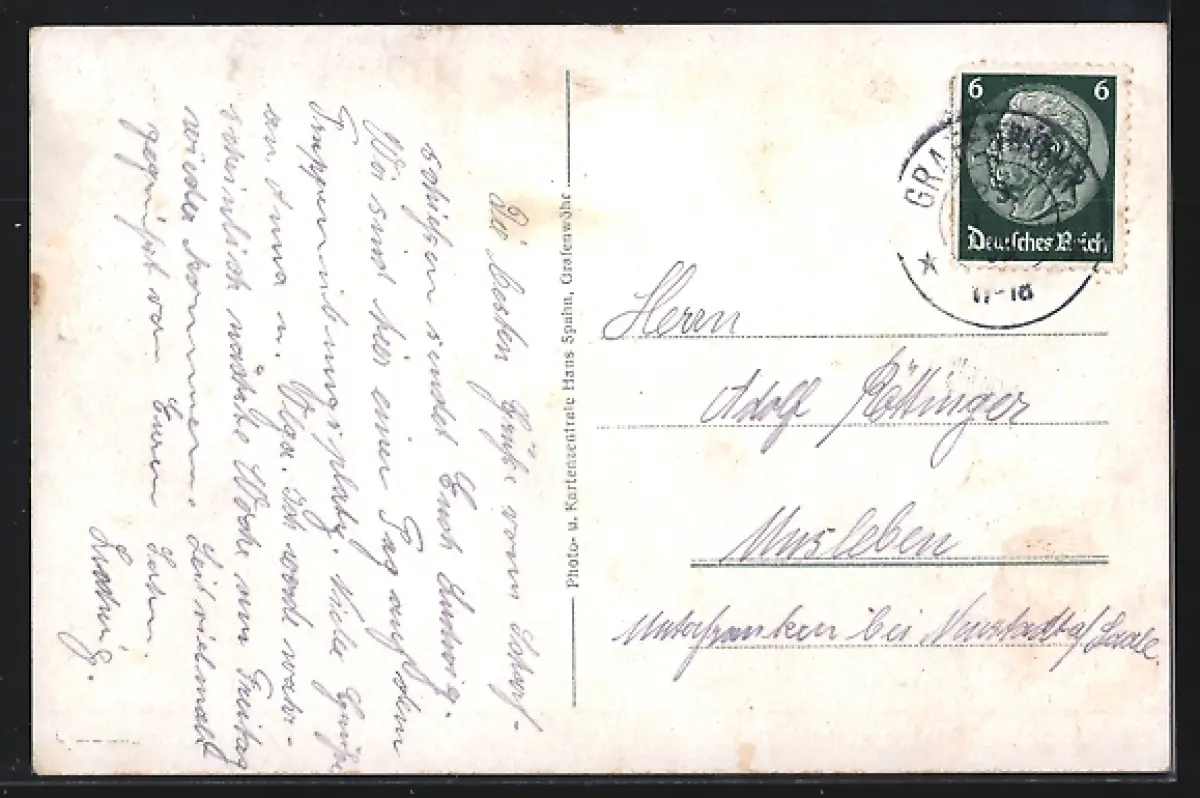 Die besten Grüße vom Scharf-
schießen sendet Euch Ludwig.
Wir sind hier einen Tag auf dem
Truppenübungsplatz. Viele Grüße
an Anna u. Olga. Ich werde wahr-
scheinlich nächste Woche am Freitag
wieder kommen. Seit vielmals
gegrüßt von Euren Sohn
Ludwig.
Photo- u. Kartenzentrale Hans Spahn, Grafenwöhr
6 6
Deutsches Reich
GRA
17-18
Herrn
Adolf Röttinger
Unsleben
Unterfranken bei Neustadt a/Saale.